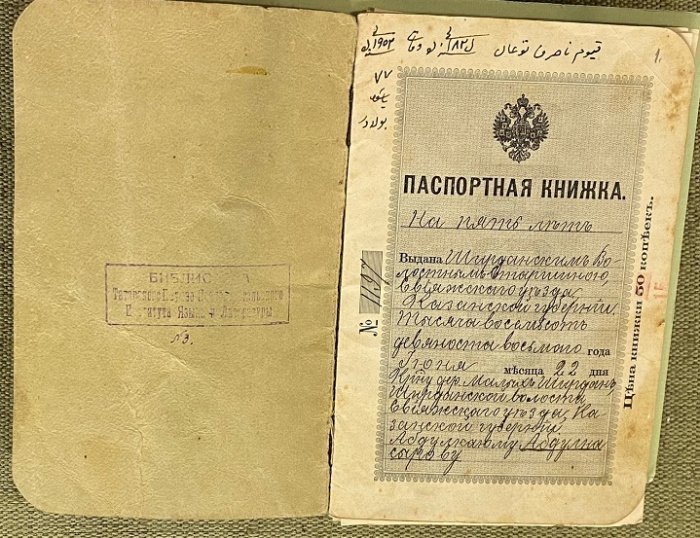 БИБЛИОТЕКА
Института Языка и Литературы
قيوم ناصرى
1902
٧٧
1.
ПАСПОРТНАЯ КНИЖКА.
На пять лѣтъ
Выдана Ширданскимъ Во-
лостнымъ Старшиною,
Свіяжскаго уѣзда
Казанской губерніи.
Тысяча восемьсотъ
девяносто восьмого года
Іюня мѣсяца 22 дня
Кр-ну дер. Малыхъ Ширданъ,
Ширданской волости
Свіяжскаго уѣзда, Ка-
занской губерніи
Абдулкаюму Абдулна
сырову
№
Цѣна книжки 50 копѣекъ.